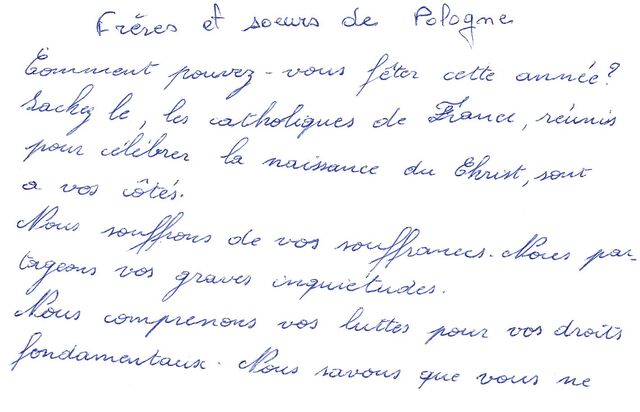 Frères et soeurs de Pologne
Comment pouvez-vous fêter cette année?
Sachez le, les catholiques de France, réunis
pour célébrer la naissance du Christ, sont
a vos côtés.
Nous souffrons de vos souffrances. Nous par-
tageons vos graves inquiétudes.
Nous comprenons vos luttes pour vos droits
fondamentaux. Nous savons que vous ne